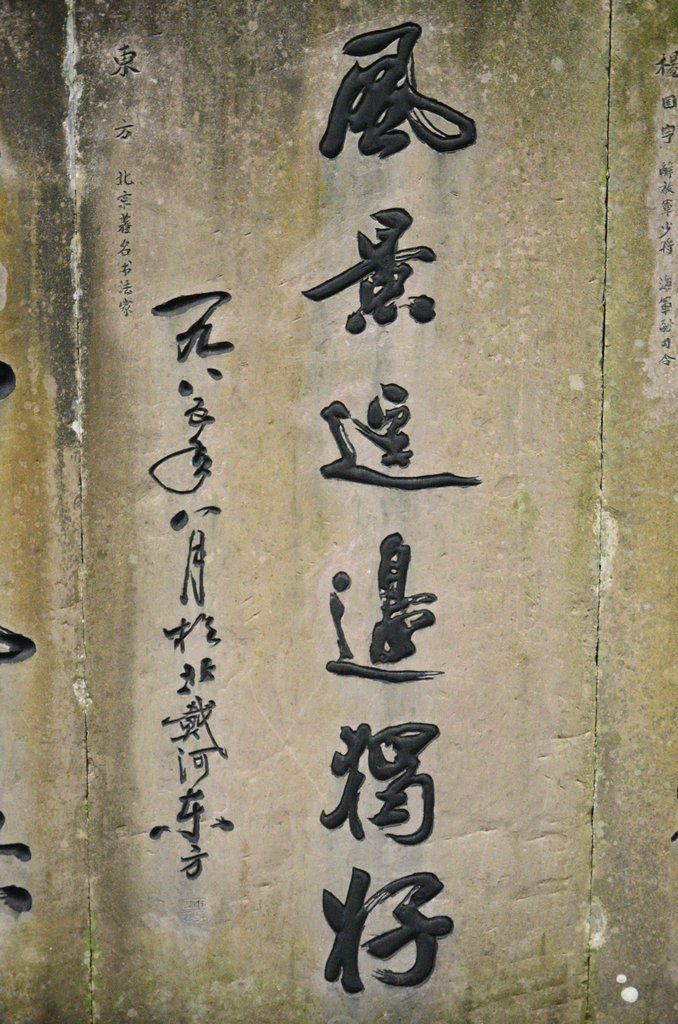 楊国宇 解放軍少将 海軍副司令
風景這邊獨好
一九八五年八月於北戴河东方
東方 北京著名书法家